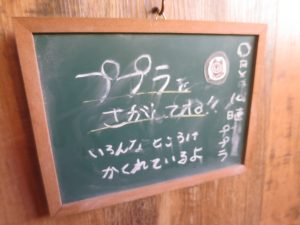 ププラを
さがしてね!!
いろんなところに
かくれているよ
ププラ